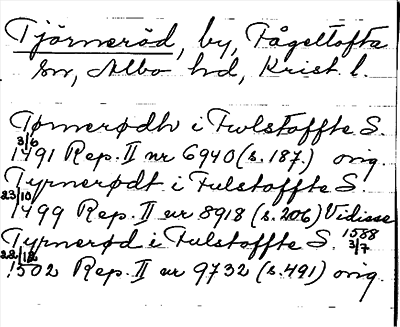 Tjörneröd, by, Fågeltofta
sn, Albo hd, Krist. l.
Tørnerødh i Fwlstoffte S.
3/6
1491 Rep. II nr 6940 (s. 187.) orig.
Tyrnerødt i Fulstoffte S.
23/10
1499 Rep. II nr 8918 (s. 206) Vidisse
Tyrnerød i Fulstoffte S. 1588
22/12 3/7
1502 Rep. II nr 9732 (s. 491) orig.